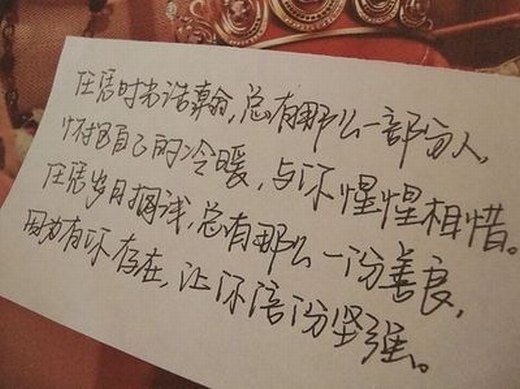 任凭时光浩瀚,总有那么一部分人,
怀抱自己的冷暖,与你惺惺相惜。
任凭岁月搁浅,总有那么一份善良,
因为有你存在,让你倍份坚强。